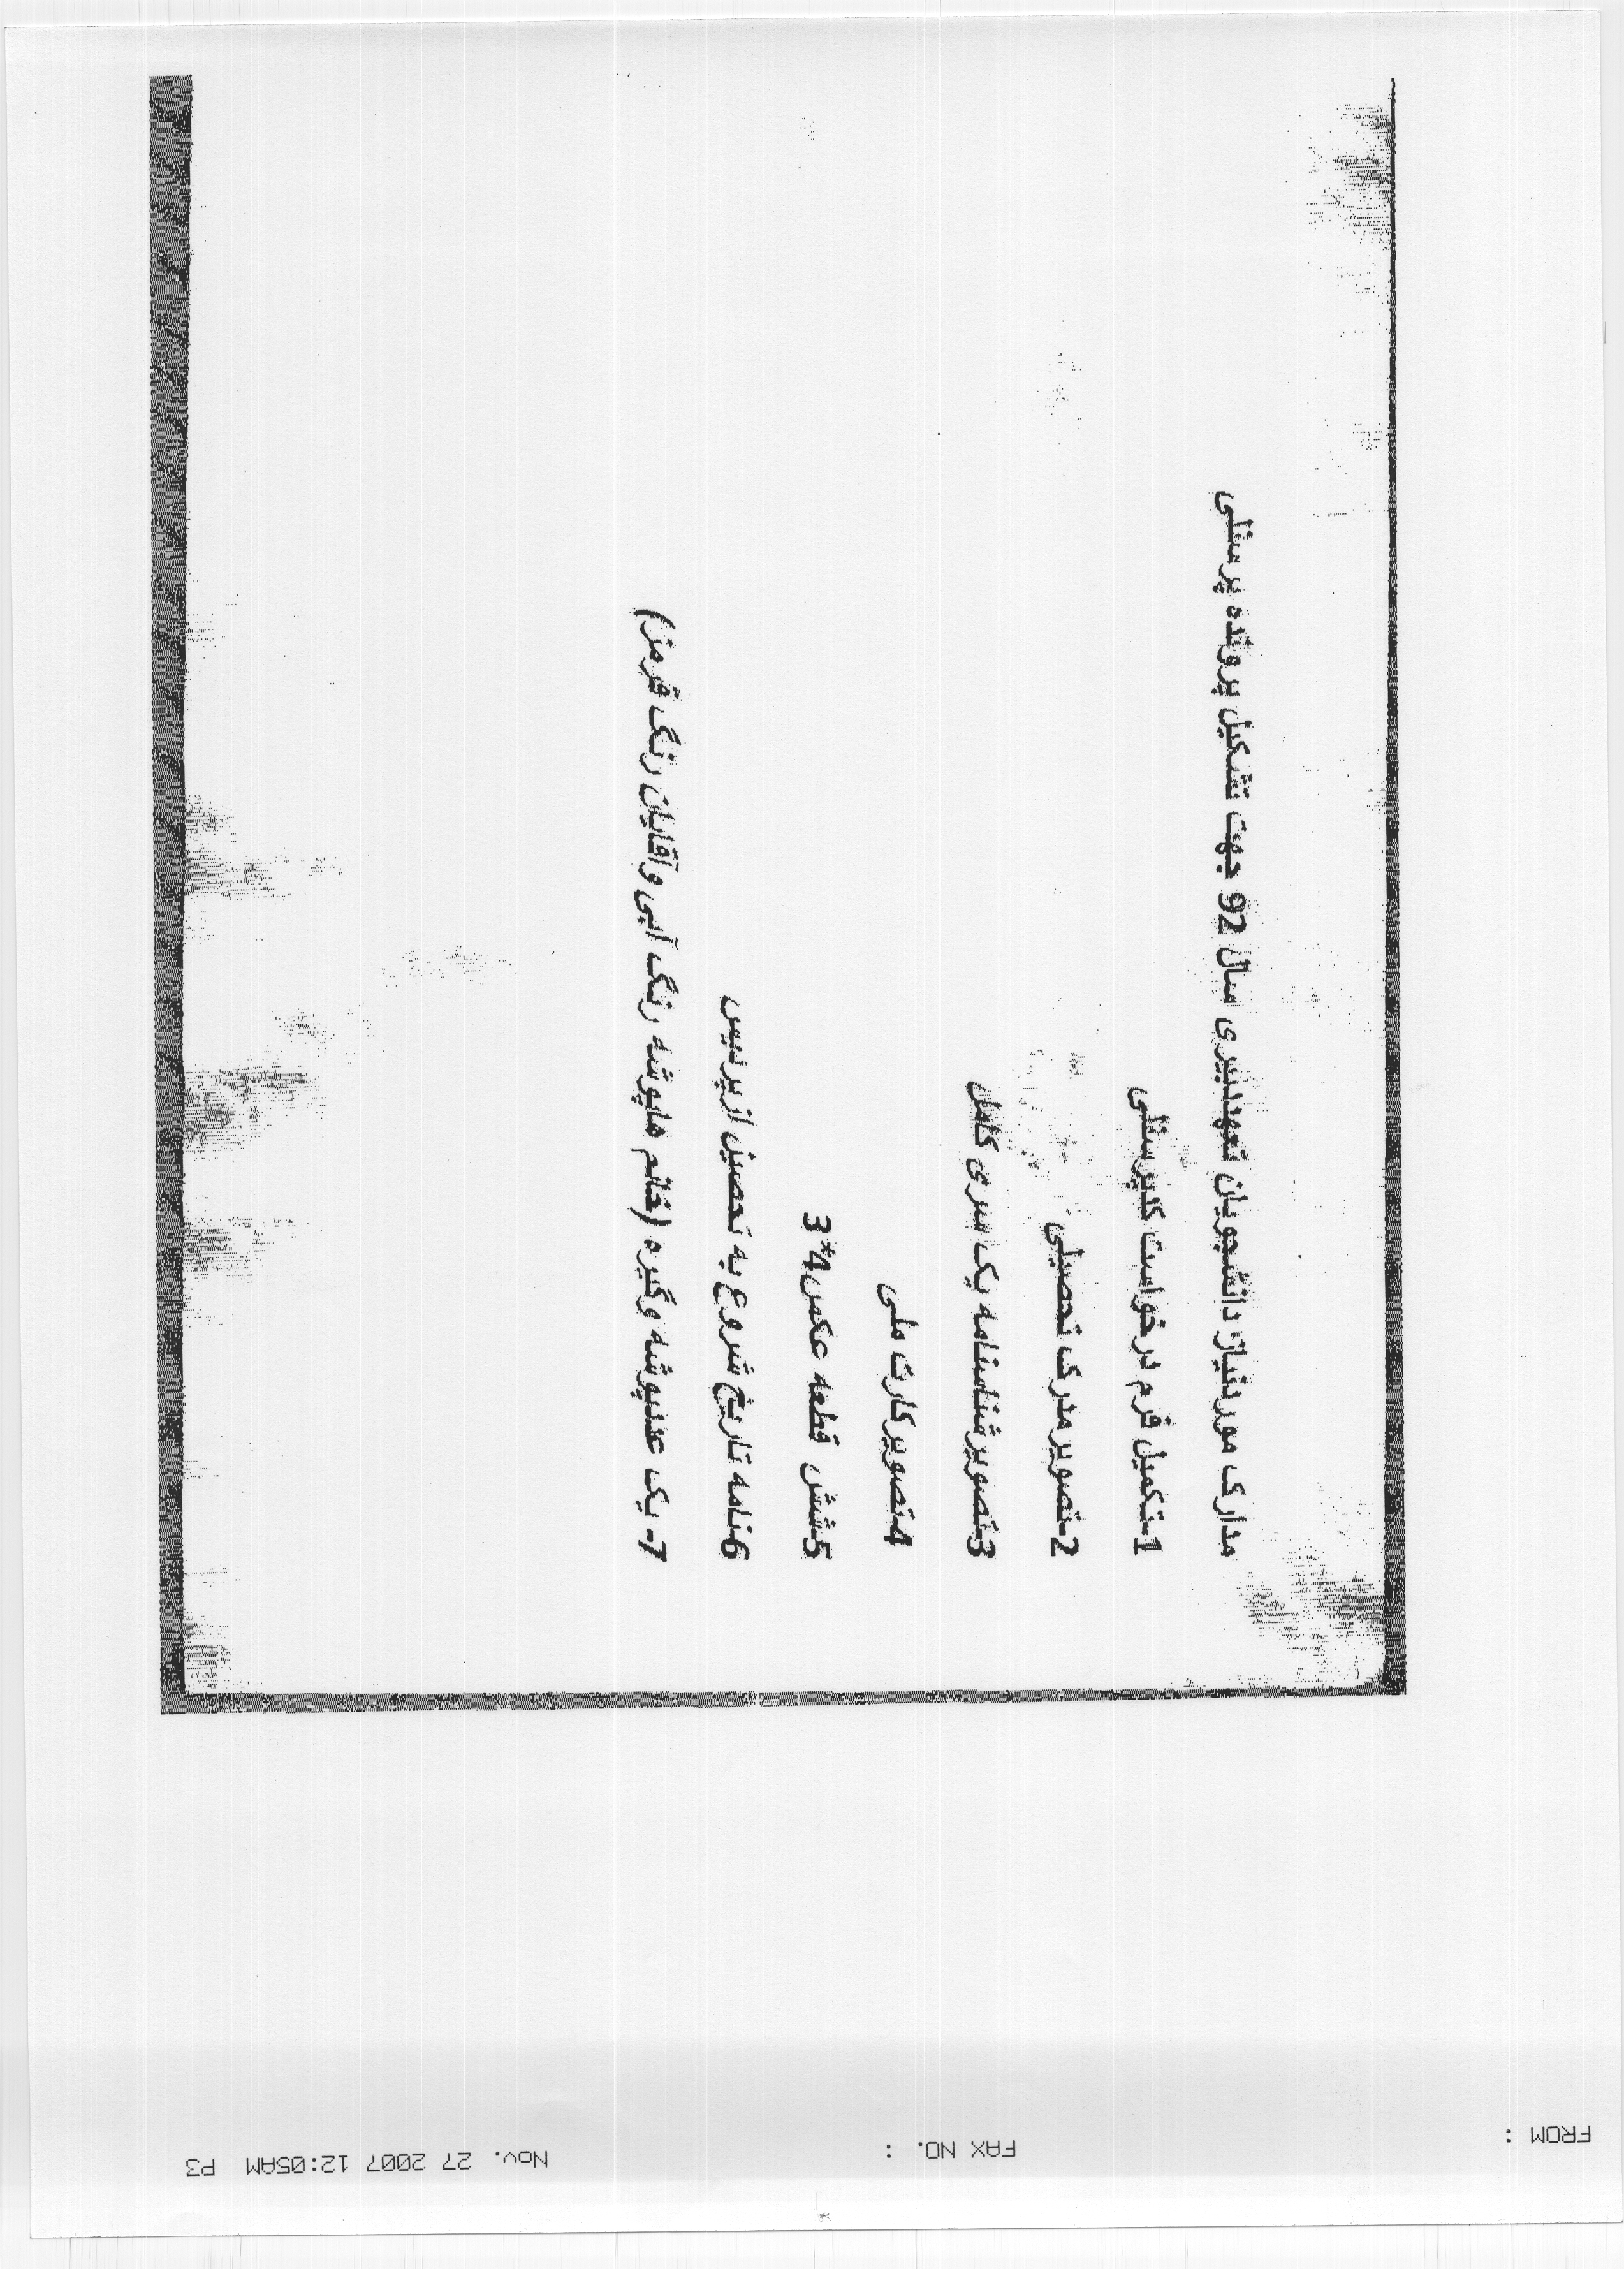 مدارک موردنیاز دانشجویان تعهددبیری سال 92 جهت تشکیل پرونده پرسنلی
1-تکمیل فرم درخواست کدپرسنلی
2-تصویر مدرک تحصیلی
3-تصویر شناسنامه یک سری کامل
4-تصویر کارت ملی
5-شش قطعه عکس 4*3
6-نامه تاریخ شروع به تحصیل از پردیس
7- یک عددپوشه وگیره (خانم هاپوشه رنگ آبی وآقایان رنگ قرمز)
FROM : FAX NO. : Nov. 27 2007 12:05AM P3